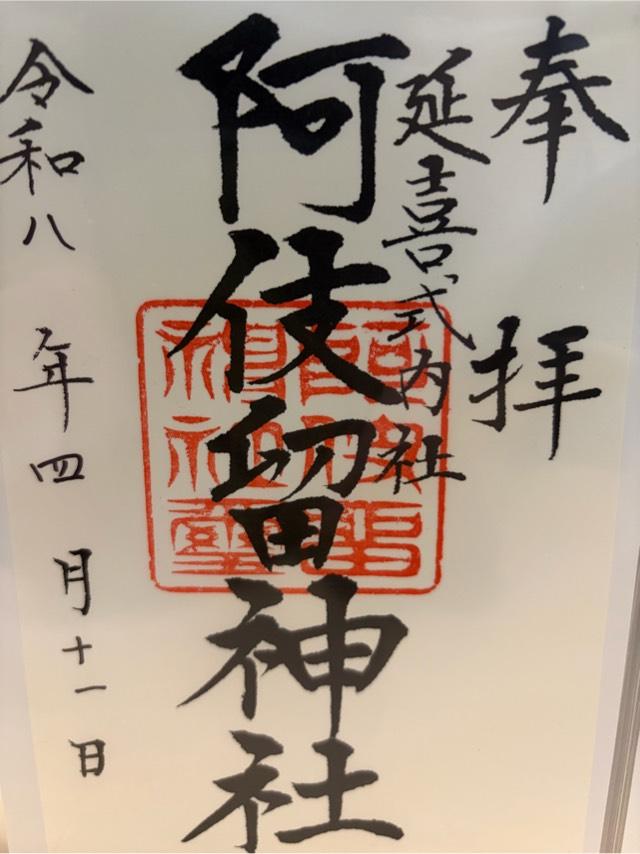 奉拝
延喜式内社
阿伎留神社
令和八年四月十一日